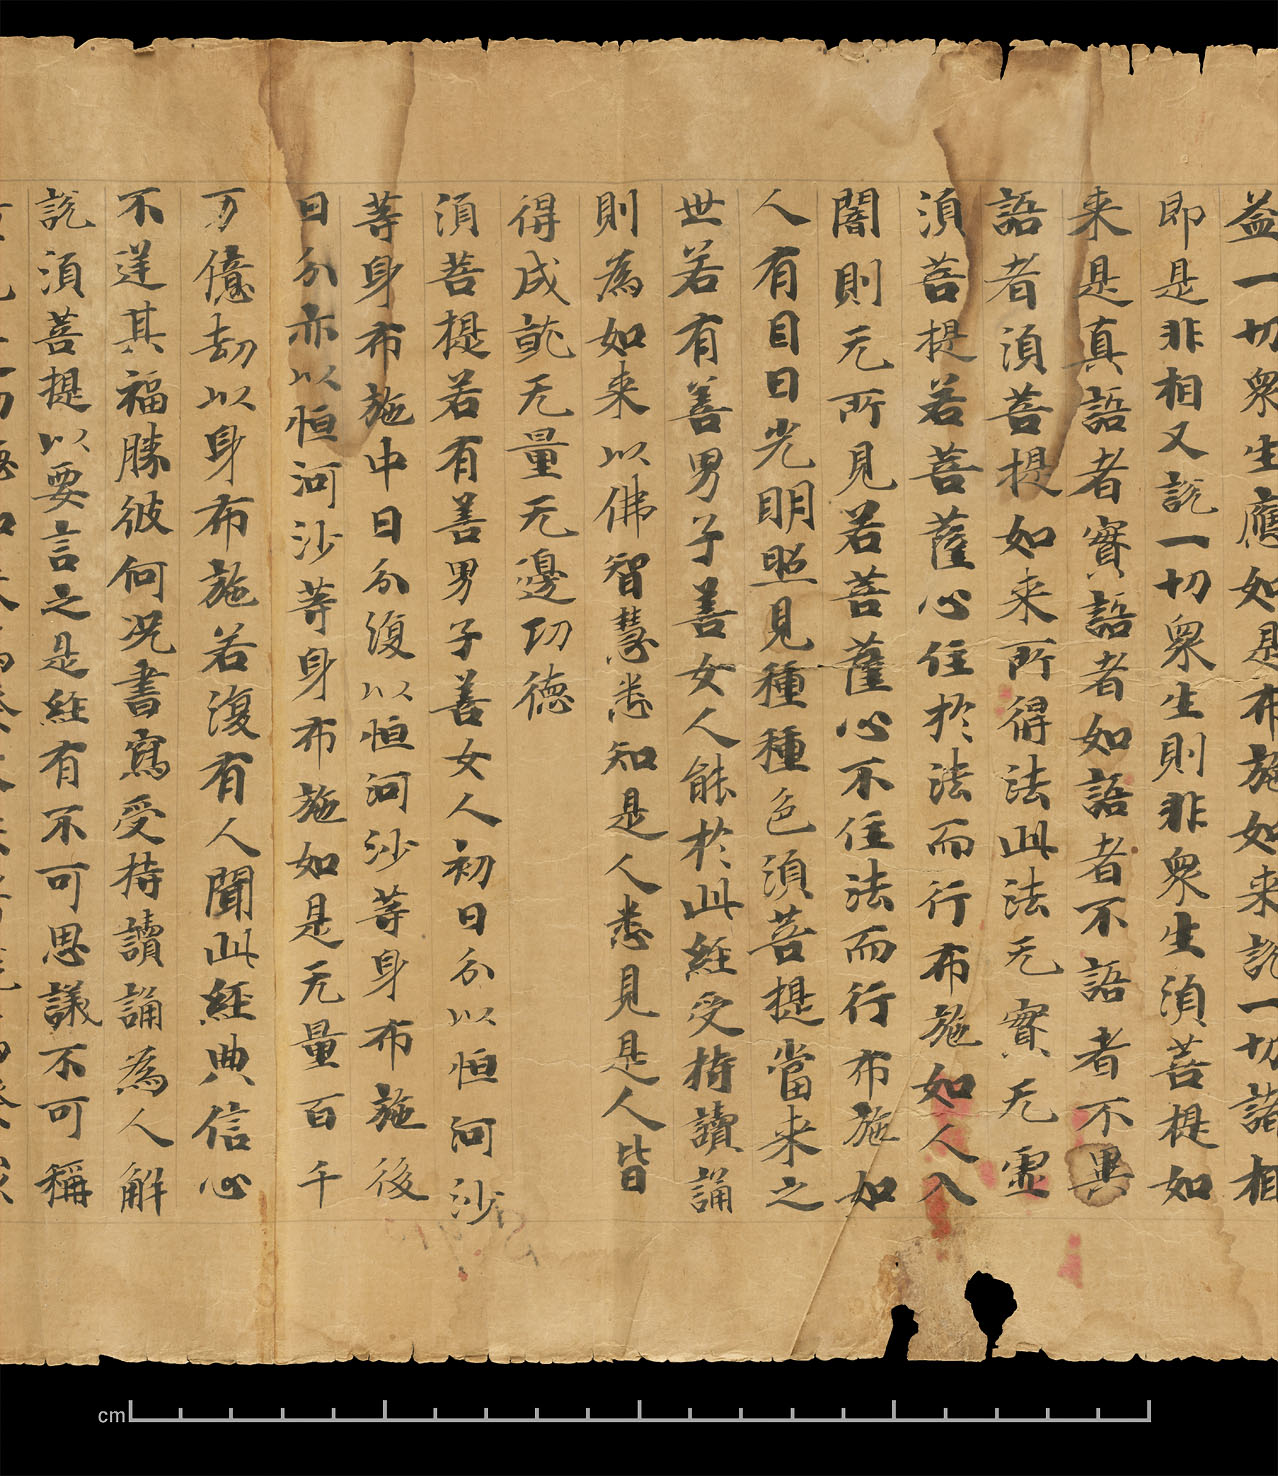 益一切衆生應如是布施如来説一切諸相
即是非相又説一切衆生則非衆生湏菩提如
来是真語者實語者如語者不誑語者不異
語者湏菩提如来所得法此法无實无虛
湏菩提若菩薩心住於法而行布施如人入
闇則无所見若菩薩心不住法而行布施如
人有目日光明照見種種色湏菩提當来之
世若有善男子善女人能於此經受持讀誦
則為如来以佛智慧悉知是人悉見是人皆
得成就无量无邊功德
湏菩提若有善男子善女人初日分以恒河沙
等身布施中日分復以恒河沙等身布施後
日分亦以恒河沙等身布施如是无量百千
万億劫以身布施若復有人聞此經典信心
不逆其福勝彼何况書寫受持讀誦為人解
説湏菩提以要言之是經有不可思議不可稱